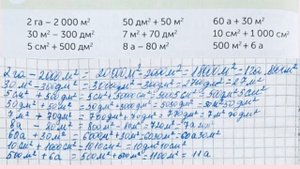 2 га – 2000 м² 50 дм² + 50 м² 60 а + 30 м²
30 м² – 300 дм² 7 м² + 70 дм² 10 см² + 1 000 см²
5 см² + 500 дм² 8 а – 80 м² 500 м² + 6 а
2 га – 2000 м² = 20000 м² – 2000 м² = 18000 м² =
30 м² – 300 дм² = 3000 дм² – 300 дм² = 2700 дм² = 27 м²
5 см² + 500 дм² = 5 см² +
50 дм² + 50 м² = 50 дм² + 5000 дм² = 5050 дм² =
7 м² + 70 дм² = 700 дм² + 70 дм² = 770 дм² = 7 м² 70 дм²
8 а – 80 м² = 800 м² – 80 м² = 720 м² =
60 а + 30 м² = 6000 м² + 30 м² = 6030 м² = 60 а 30 м²
10 см² + 1000 см² = 1010 см² = 10 дм² 10 см²
500 м² + 6 а = 500 м² + 600 м² = 1100 м² = 11 а